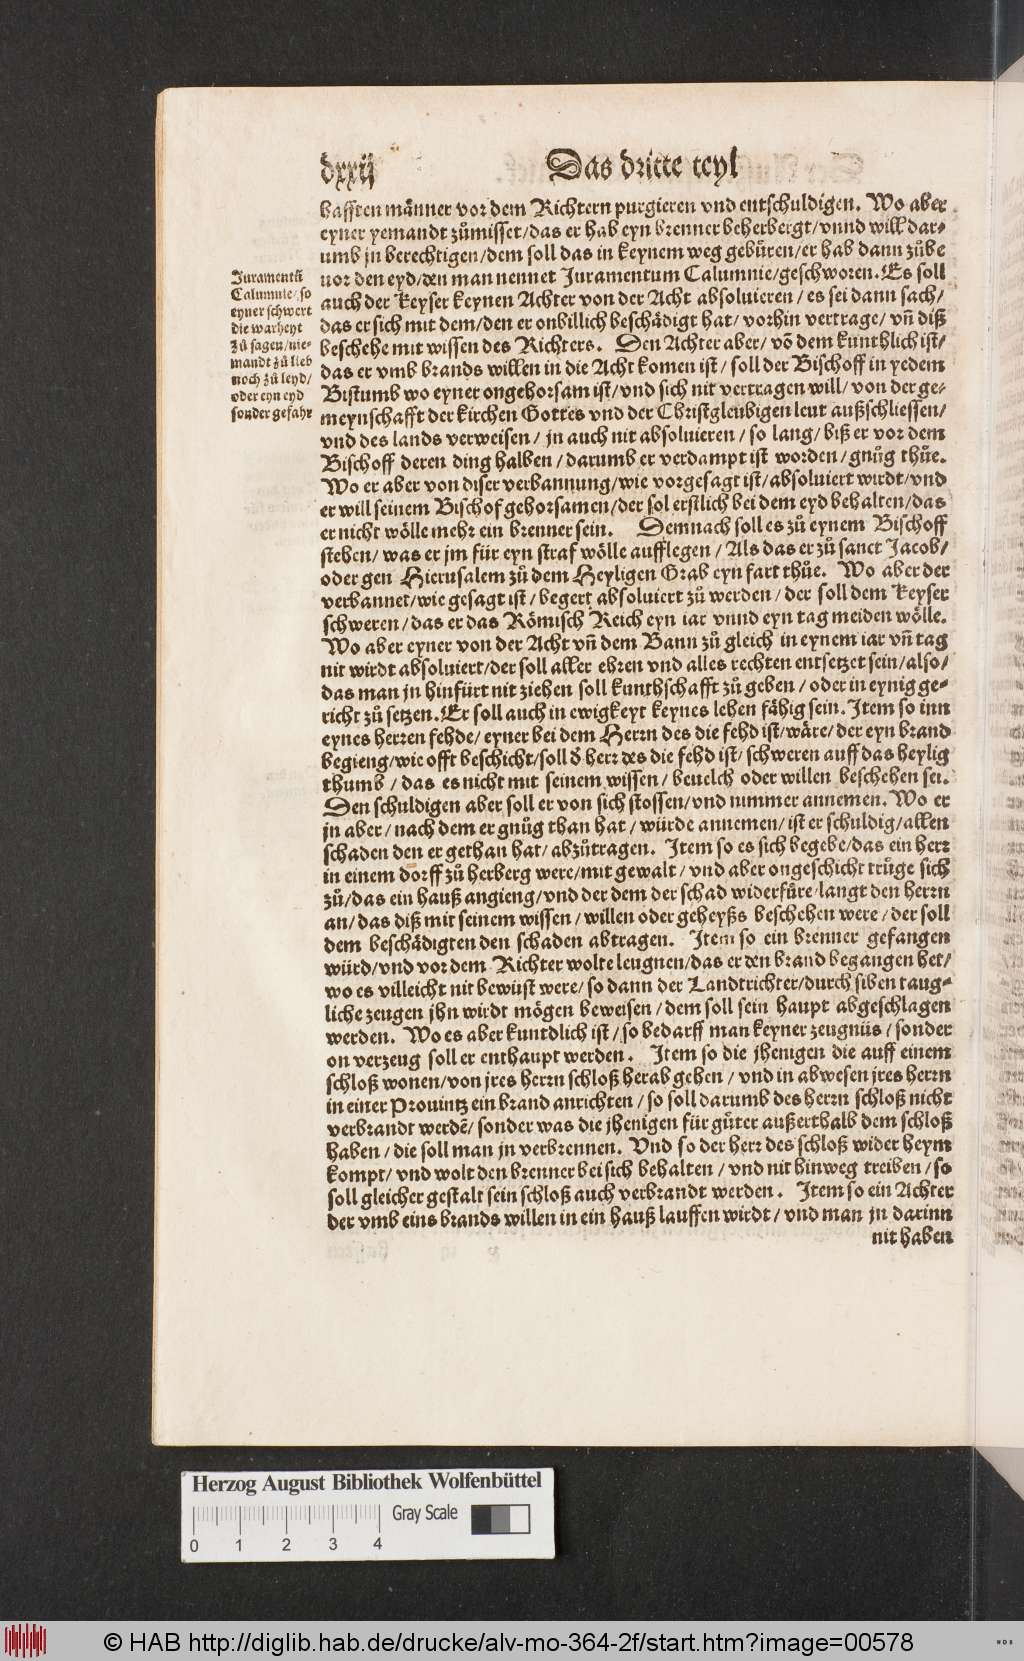 dxxij Das dritte teyl
hafften männer vor dem Richtern purgieren vnd entschuldigen. Wo aber
eyner yemandt zůmisset/das er hab eyn brenner beherbergt/vnnd will dar⸗
umb jn berechtigen/dem soll das in keynem weg gebüren/er hab dann zůbe
uor den eyd/den man nennet Juramentum Calumnie/geschworen. Es soll
auch der Keyser keynen Achter von der Acht absoluieren/es sei dann sach/
das er sich mit dem/den er onbillich beschädigt hat/vorhin vertrage/vñ diß
beschehe mit wissen des Richters. Den Achter aber/võ dem kunthlich ist/
das er vmb brands willen in die Acht komen ist/soll der Bischoff in yedem
Bistumb wo eyner ongehorsam ist/vnd sich nit vertragen will/von der ge⸗
meynschafft der kirchen Gottes vnd der Christgleubigen leut außschliessen/
vnd des lands verweisen/jn auch nit absoluieren/so lang/biß er vor dem
Bischoff deren ding halben/darumb er verdampt ist worden/gnůg thůe.
Wo er aber von diser verbannung/wie vorgesagt ist/absoluiert wirdt/vnd
er will seinem Bischof gehorsamen/der sol erstlich bei dem eyd behalten/das
er nicht wölle mehr ein brenner sein. Demnach soll es zů eynem Bischoff
stehen/was er jm für eyn straf wölle aufflegen/Als das er zů sanct Jacob/
oder gen Hierusalem zů dem Heyligen Grab eyn fart thůe. Wo aber der
verbannet/wie gesagt ist/begert absoluiert zů werden/der soll dem Keyser
schweren/das er das Römisch Reich eyn iar vnnd eyn tag meiden wölle.
Wo aber eyner von der Acht vñ dem Bann zů gleich in eynem iar vñ tag
nit wirdt absoluiert/der soll aller ehren vnd alles rechten entsetzet sein/also/
das man jn hinfürt nit ziehen soll kunthschafft zů geben/oder in eynig ge⸗
richt zů setzen. Er soll auch in ewigkeyt keynes lehen fähig sein. Item so inn
eynes herren fehde/eyner bei dem Herrn des die fehd ist/wäre/der eyn brand
begieng/wie offt beschicht/soll d̕ herr des die fehd ist/schweren auff das heylig
thumb/das es nicht mit seinem wissen/beuelch oder willen beschehen sei.
Den schuldigen aber soll er von sich stossen/vnd nimmer annemen. Wo er
jn aber/nach dem er gnůg than hat/würde annemen/ist er schuldig/allen
schaden den er gethan hat/abzůtragen. Item so es sich begebe/das ein herr
in einem dorff zů herberg were/mit gewalt/vnd aber ongeschicht trůge sich
zů/das ein hauß angieng/vnd der dem der schad widerfüre/langt den herrn
an/das diß mit seinem wissen/willen oder geheyßs beschehen were/der soll
dem beschädigten den schaden abtragen. Item so ein brenner gefangen
würd/vnd vor dem Richter wolte leugnen/das er den brand begangen het/
wo es villeicht nit bewüst were/so dann der Landtrichter/durch siben taug⸗
liche zeugen jhn wirdt mögen beweisen/dem soll sein haupt abgeschlagen
werden. Wo es aber kuntdlich ist/so bedarff man keyner zeugnüs/sonder
on verzeug soll er enthaupt werden. Item so die jhenigen die auff einem
schloß wonen/von jres herrn schloß herab gehen/vnd in abwesen jres herrn
in einer Prouintz ein brand anrichten/so soll darumb des herrn schloß nicht
verbrandt werdẽ/sonder was die jhenigen für güter außerthalb dem schloß
haben/die soll man jn verbrennen. Vnd so der herr des schloß wider heym
kompt/vnd wolt den brenner bei sich behalten/vnd nit hinweg treiben/so
soll gleicher gestalt sein schloß auch verbrandt werden. Item so ein Achter
der vmb eins brands willen in ein hauß lauffen wirdt/vnd man jn darinn
nit haben
Juramentũ
Calumnie/so
eyner schwert
die warheyt
zů sagen/nie⸗
mandt zů lieb
noch zů leyd/
oder eyn eyd
sonder gefahr
Herzog August Bibliothek Wolfenbüttel
Gray Scale
0 1 2 3 4
© HAB http://diglib.hab.de/drucke/alv-mo-364-2f/start.htm?image=00578